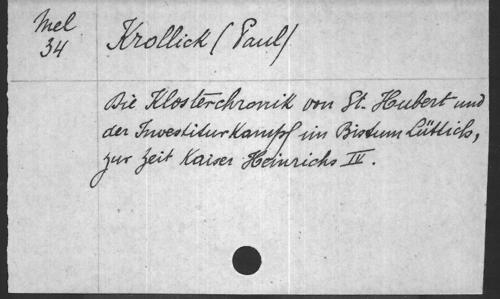 Mel
34
Krollick (Paul)
Die Klosterchronik von St. Hubert und
der Investiturkampf im Bistum Lüttich,
zur Zeit Kaiser Heinrichs IV.